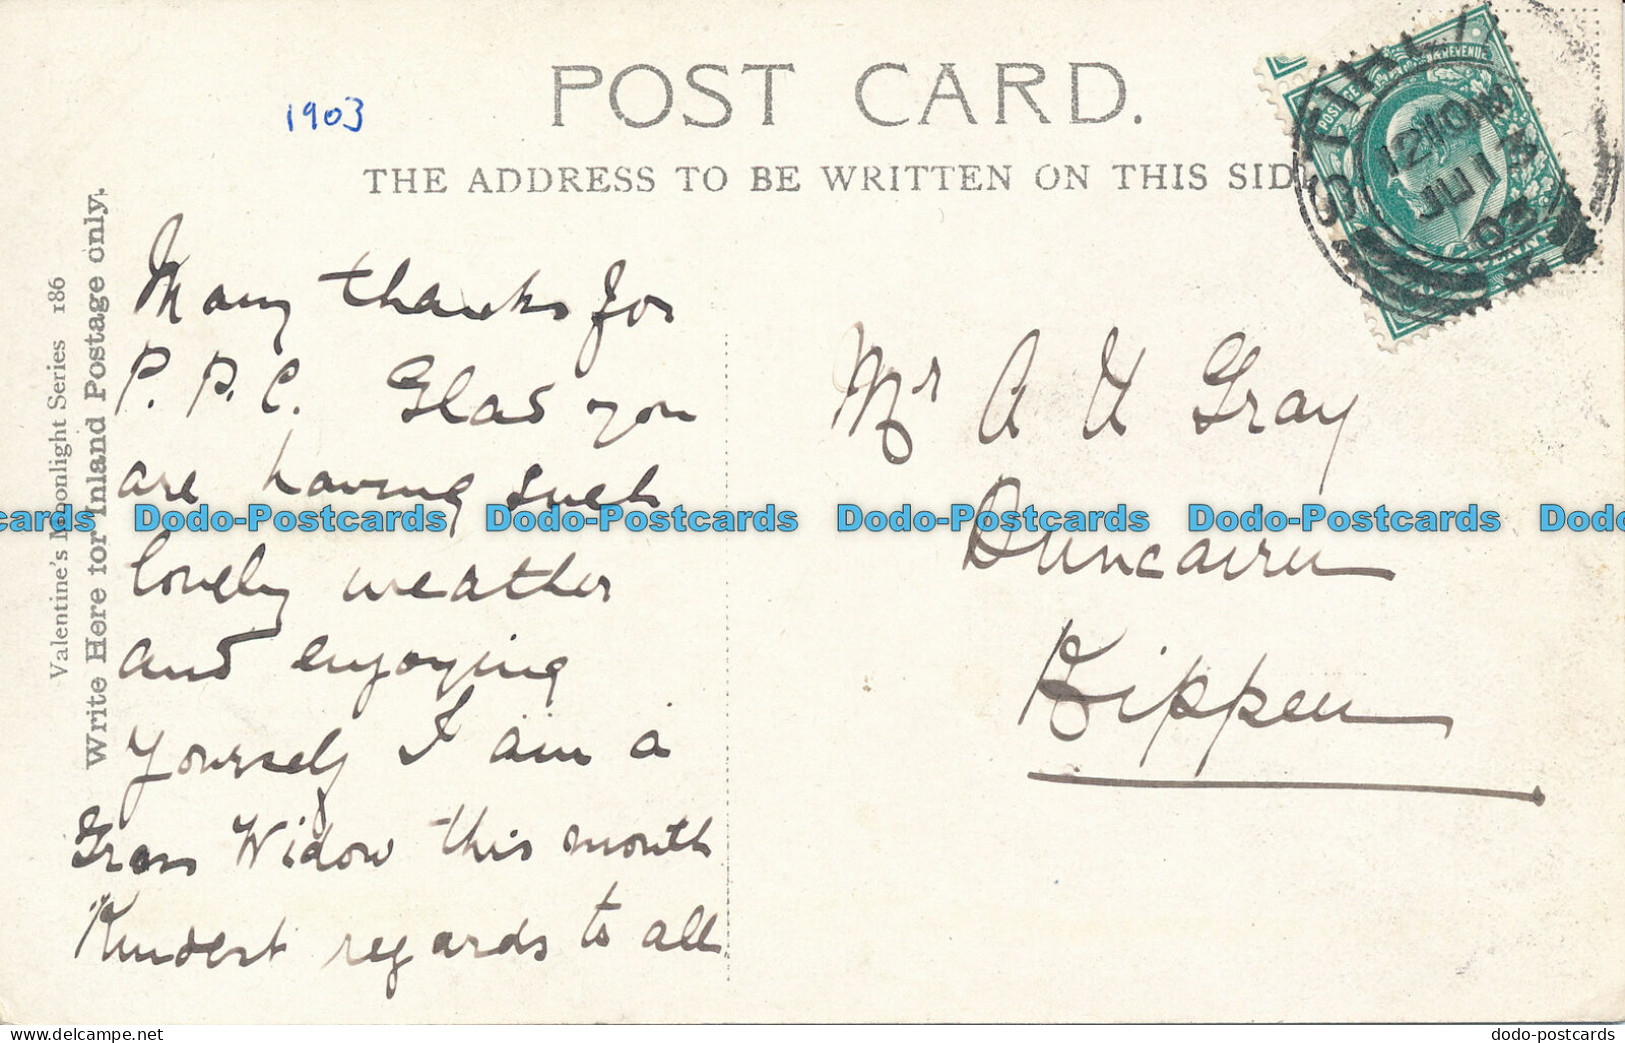 POST CARD.
1903
THE ADDRESS TO BE WRITTEN ON THIS SIDE
Valentine's Moonlight Series 186
Write Here for Inland Postage only.
POSTAGE & REVENUE
STIRLING
12 10PM
JU 11
03
Many thanks for
P.P.C. Glad you
are having such
lovely weather
and enjoying
yourself I am a
Grass Widow this month
Kindest regards to all
Mr A H Gray
Duncairn
Kippen
cards Dodo-Postcards Dodo-Postcards Dodo-Postcards Dodo-Postcards Dodo
www.delcampe.net
dodo-postcards